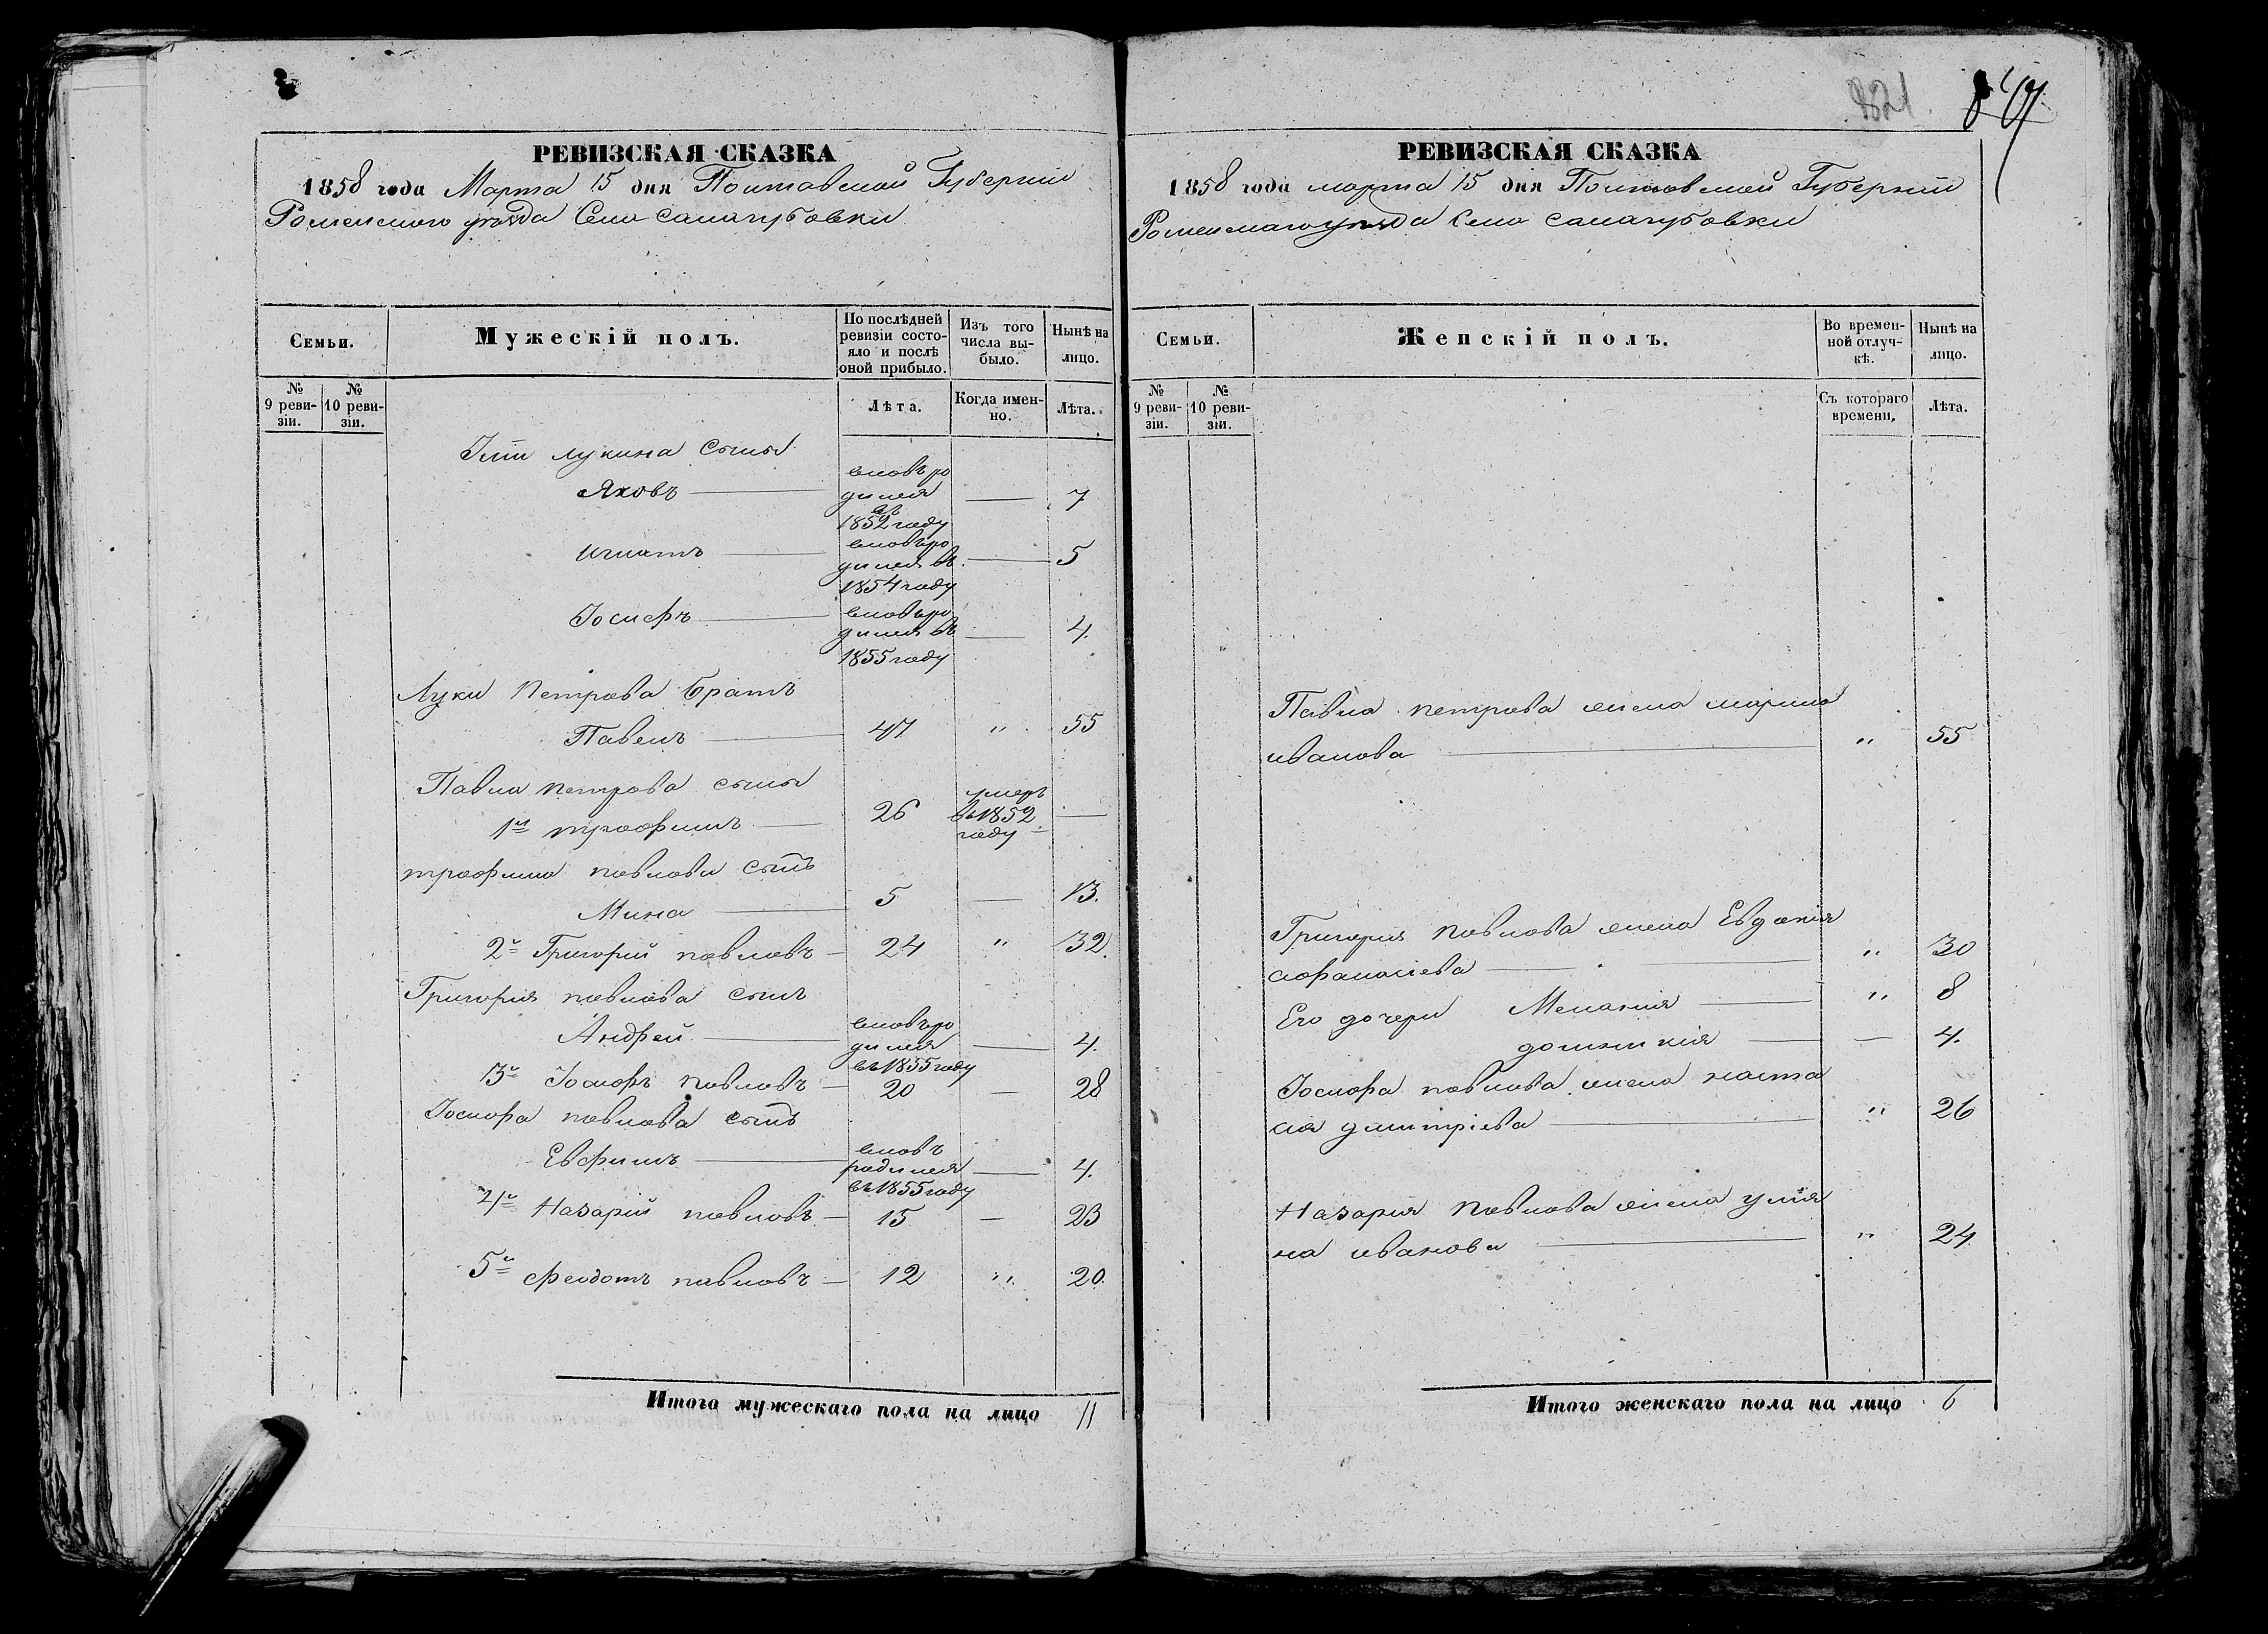 РЕВИЗСКАЯ СКАЗКА
1858 года Марта 15 дня Полтавской Губерніи
Роменского уѣзда Села Салагубовки
Семьи.
Мужескій полъ.
По послѣдней ревизіи состояло и послѣ оной прибыло.
Изъ того числа выбыло.
Нынѣ на лицо.
№ 9 ревизіи.
№ 10 ревизіи.
Лѣта.
Когда именно.
Лѣта.
лукина сыны
Яковъ вновь родился въ 1852 году — 7
Игнатъ вновь родился въ 1854 году — 5
Іосифъ вновь родился въ 1855 году — 4
Луки Петрова братъ
Павелъ 47 " 55
Павла Петрова сыны
1й трофимъ 26 умеръ въ 1852 году —
трофима павлова сынъ
Мина 5 — 13.
2й Григорій павловъ 24 " 32.
Григорія павлова сынъ
Андрей вновь родился въ 1855 году — 4.
3й Іосифъ павловъ 20 — 28
Іосифа павлова сынъ
Евфимъ вновь родился въ 1855 году — 4.
4й Назарій павловъ 15 — 23
5й феодотъ павловъ 12 " 20.
Итого мужескаго пола на лицо 11
821
847
РЕВИЗСКАЯ СКАЗКА
1858 года марта 15 дня Полтавской Губерніи
Роменскаго уѣзда Села Салагубовки
Семьи.
Женскій полъ.
Во временной отлучкѣ.
Нынѣ на лицо.
№ 9 ревизіи.
№ 10 ревизіи.
Съ котораго времени.
Лѣта.
Павла петрова жена марина
иванова " 55
Григорія павлова жена Евдокія
афанасіева " 30
Его дочери Меланія " 8
домникія — 4.
Іосифа павлова жена наста
сія дмитріева " 26
Назарія павлова жена улія
на иванова " 24
Итого женскаго пола на лицо 6